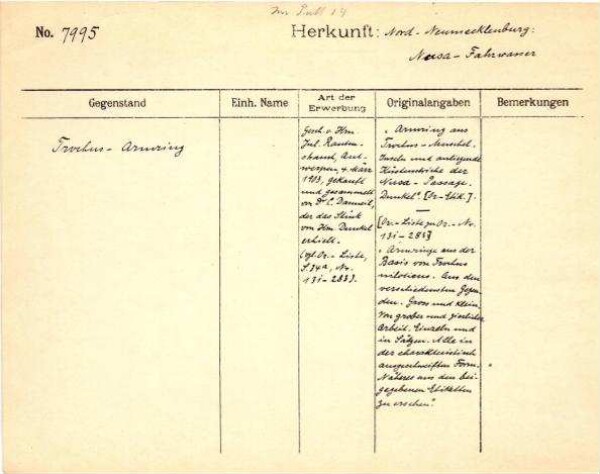 Im Pult 14
No. 7995
Herkunft: Nord-Neumecklenburg:
Nusa-Fahrwasser
Gegenstand
Einh. Name
Art der
Erwerbung
Originalangaben
Bemerkungen
Trochus-Armring
Gesch. v. Hrn
Jul.
werpen, 4. März
1913, gekauft
und gesammelt
von Dr C. Danneil,
der das Stück
von Hrn Dunkel
erhielt.
(vgl. Or.-Liste,
S. 34a, No.
131-283).
"Armring aus
Trochus-Muschel.
Inseln und anliegende
Küstenstriche der
Nusa-Passage.
Dunkel" [Or-Etik.].
[Or.-Liste zu Or.-No.
131-283]
"Armringe aus der
Basis von Trochus
niloticus. Aus den
verschiedensten Gegen-
den. Gross und klein.
Von grober und zierlicher
Arbeit. Einzeln und
in Sätzen. Alle in
der charakteristisch
ausgeschweiften Form.
Näheres aus den bei-
gegebenen Etiketten
zu ersehen".